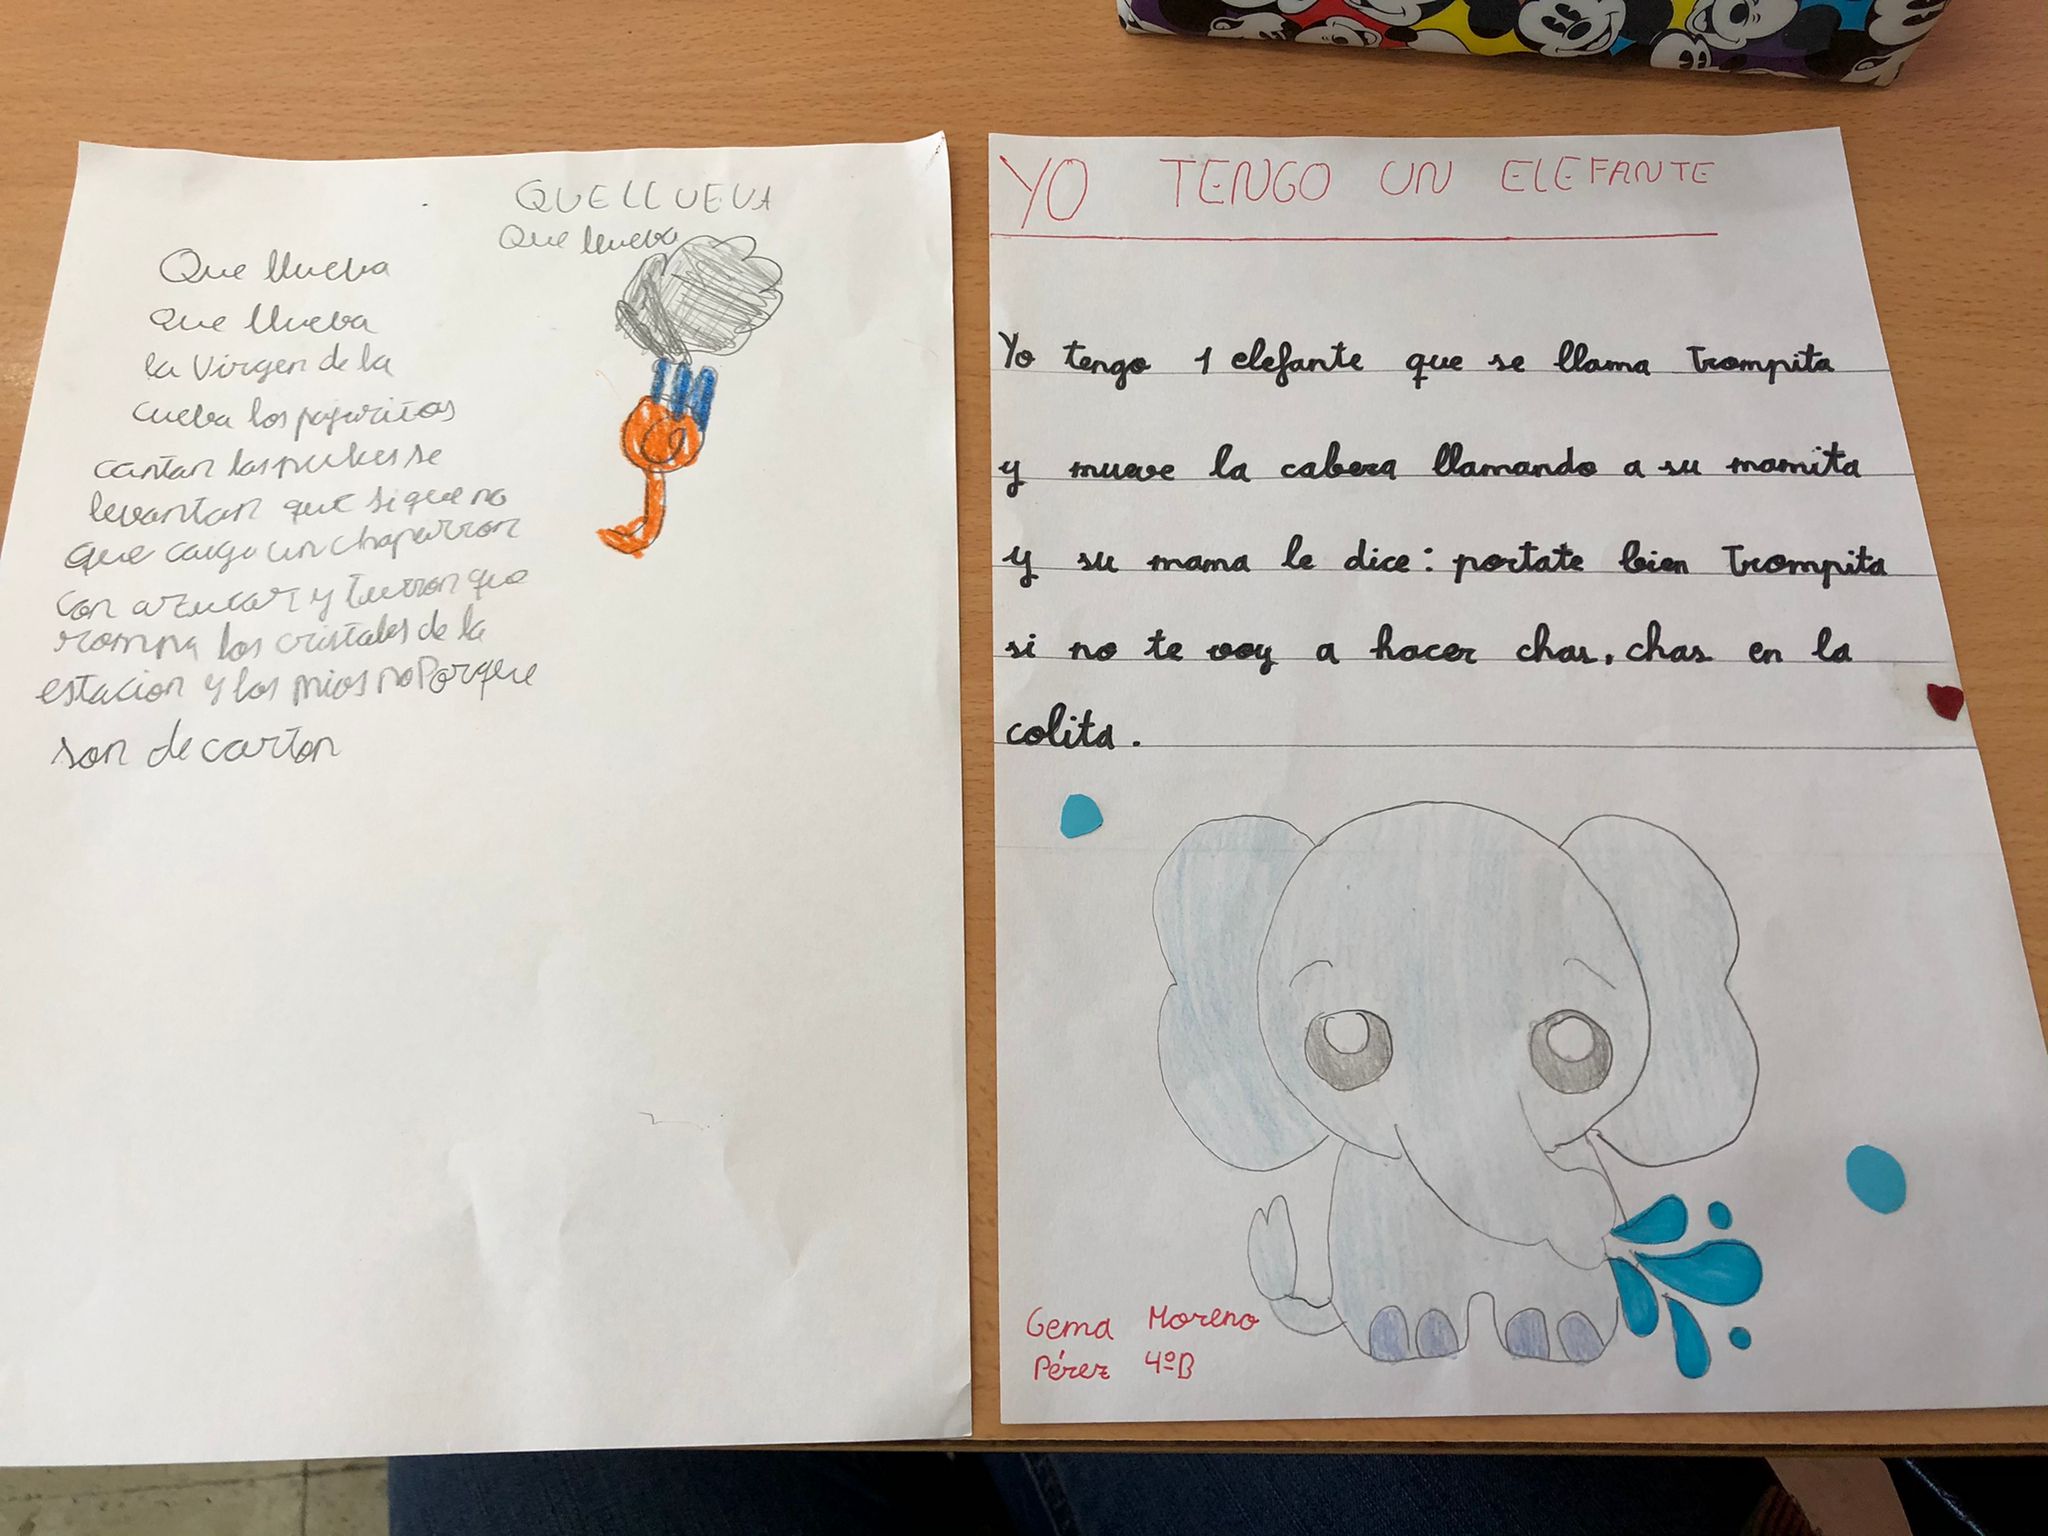 QUE LLUEVA
Que llueba
Que llueba
que llueba
la Virgen de la
cueba los pajaritos
cantan las nubes se
levantan que si que no
que caiga un chaparron
con azucar y turron que
rompa los cristales de la
estacion y los mios no Porque
son de carton
YO TENGO UN ELEFANTE
Yo tengo 1 elefante que se llama Trompita
y mueve la cabeza llamando a su mamita
y su mama le dice: portate bien Trompita
si no te voy a hacer chas, chas en la
colita.
Gema Moreno
Pérez 4ºB